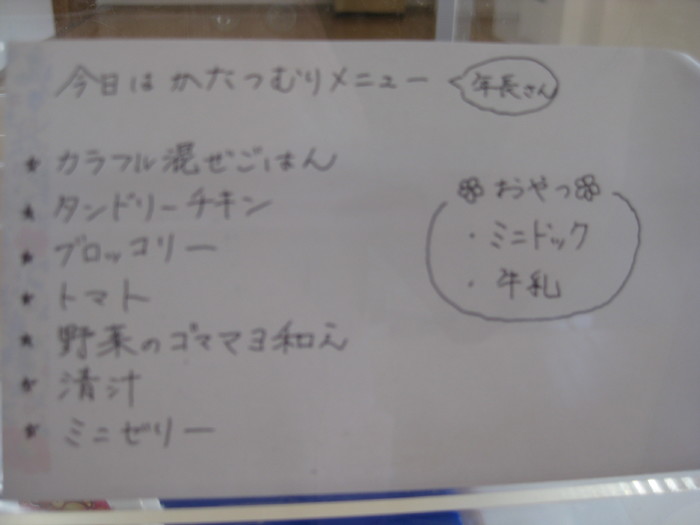 今日はかたつむりメニュー
年長さん
★ カラフル混ぜごはん
★ タンドリーチキン
★ ブロッコリー
★ トマト
★ 野菜のゴママヨ和え
★ 清汁
★ ミニゼリー
おやつ
・ミニドック
・牛乳